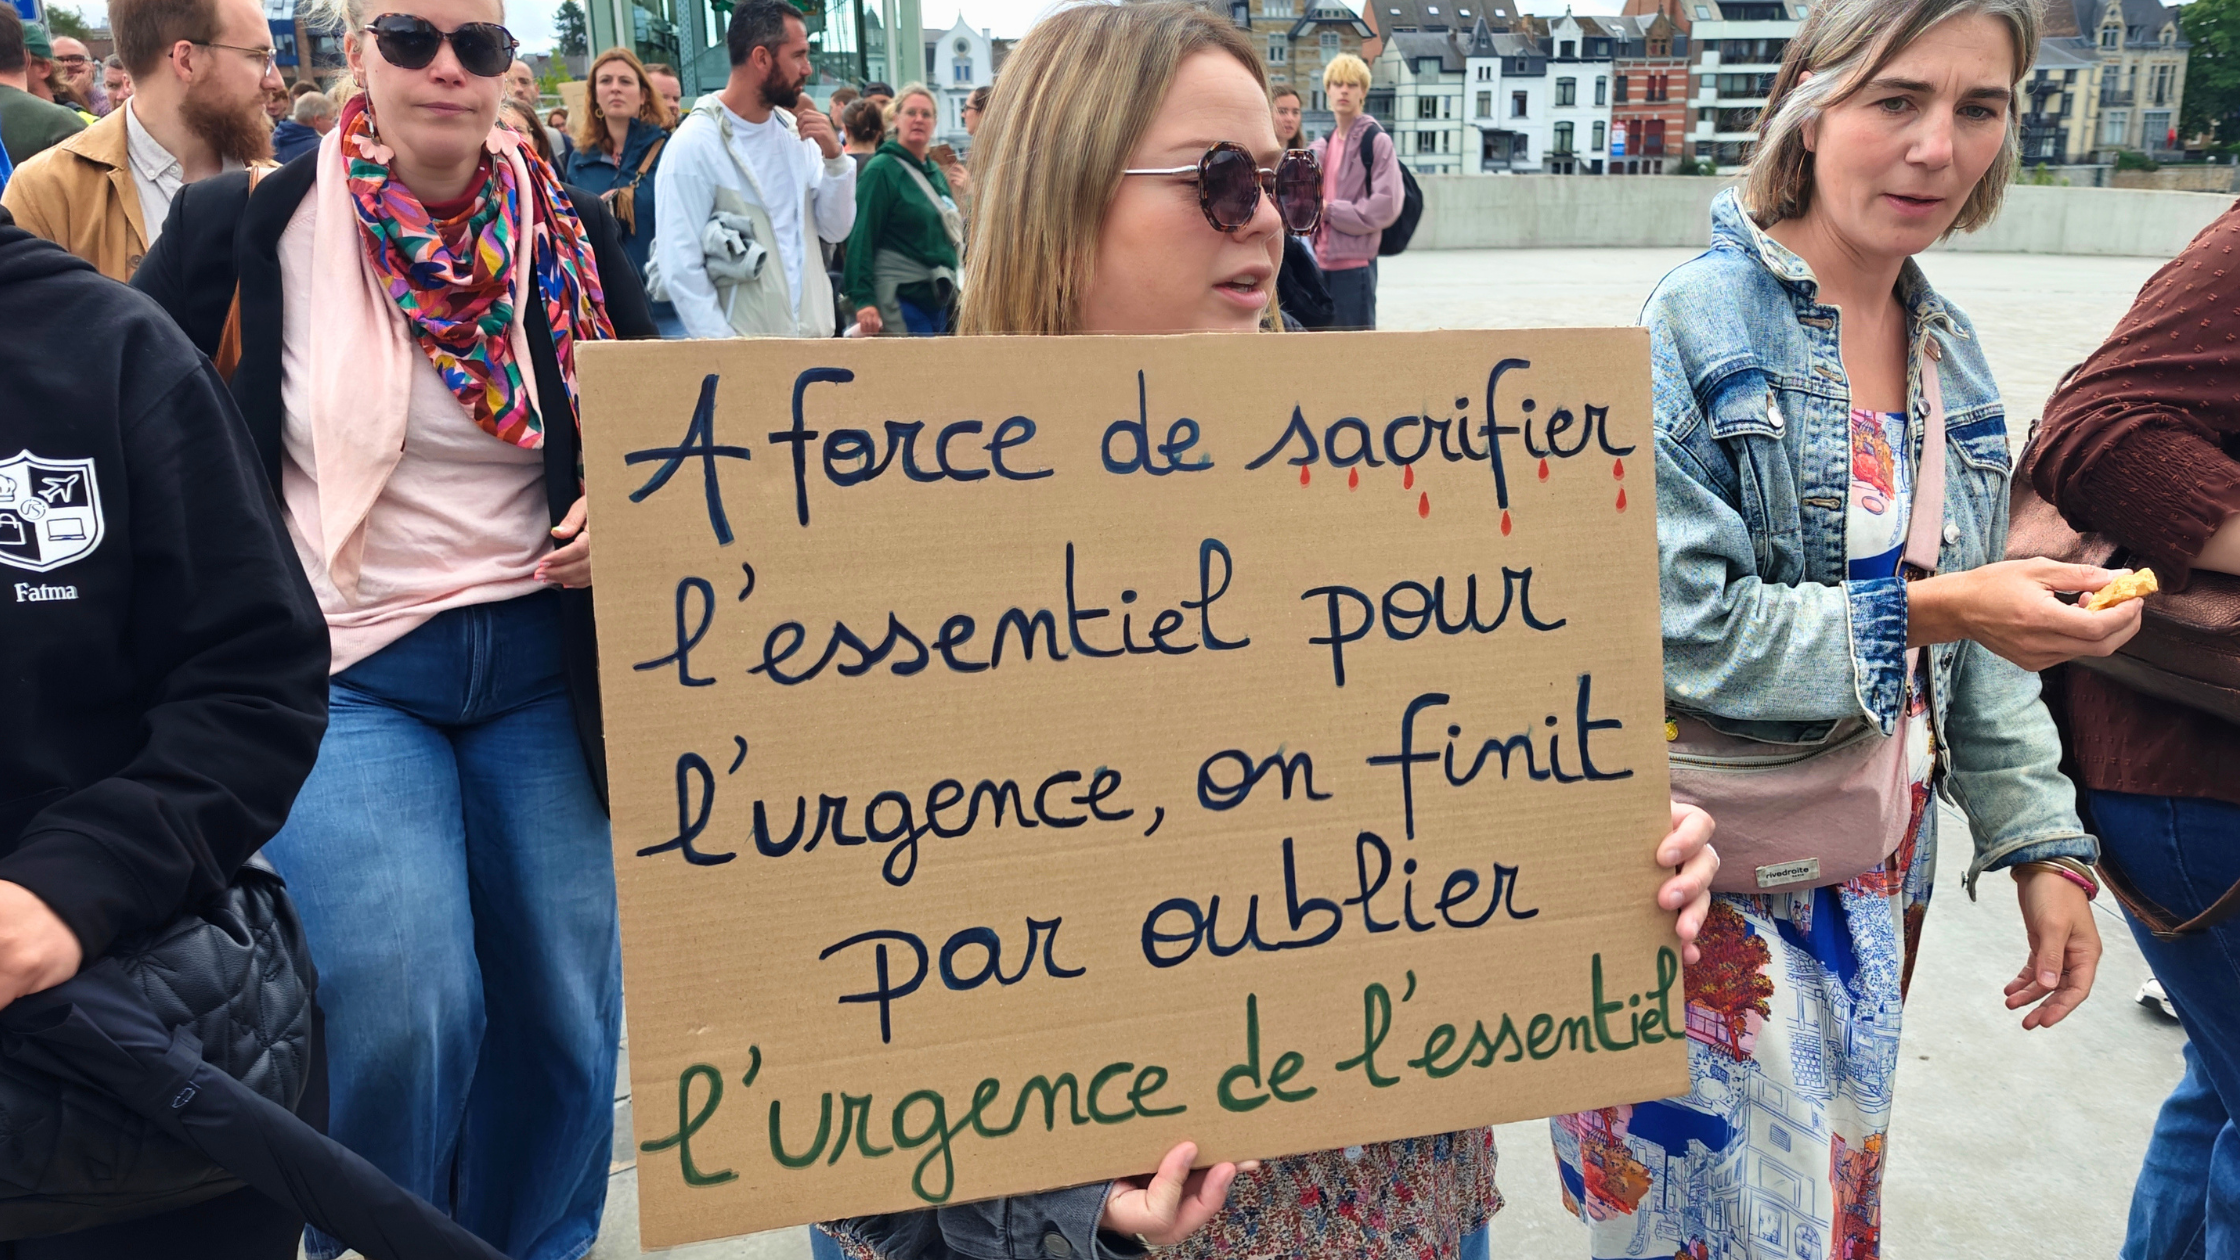 A force de sacrifier
l'essentiel pour
l'urgence, on finit
par oublier
l'urgence de l'essentiel
Fatma
rivedroite